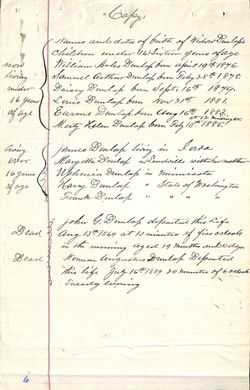 Copy.
Names and dates of birth of Widow Dunlap's
Children under 16 sixteen years of age
William Dunlap born April 19th 1876.
Samuel Arthur Dunlap born Feby 28th 1878.
Daisey Dunlap born Sept. 16th 1879.
Louis Dunlap born Nov 21st 1881
Dunlap born Aug 16th 1883.
Mirty Helen Dunlap born Feby 15th 1885.
now
living
under
16 years
of age
living
over
16 years
of age
James Dunlap living in Iowa
Maryetta Dunlap " Lindville with her mother
Dunlap in Minnisota
Harry Dunlap " State of Washington
Frank Dunlap " " " "
Dead
John C. Dunlap departed this Life
Aug 13th 1869 at 10 minutes of five oclock
in the morning aged 19 months
Dead
Norman Augustus Dunlap Departed
this Life July 16th 1889 20 minutes of 6 oclock
Tuesday evening
6